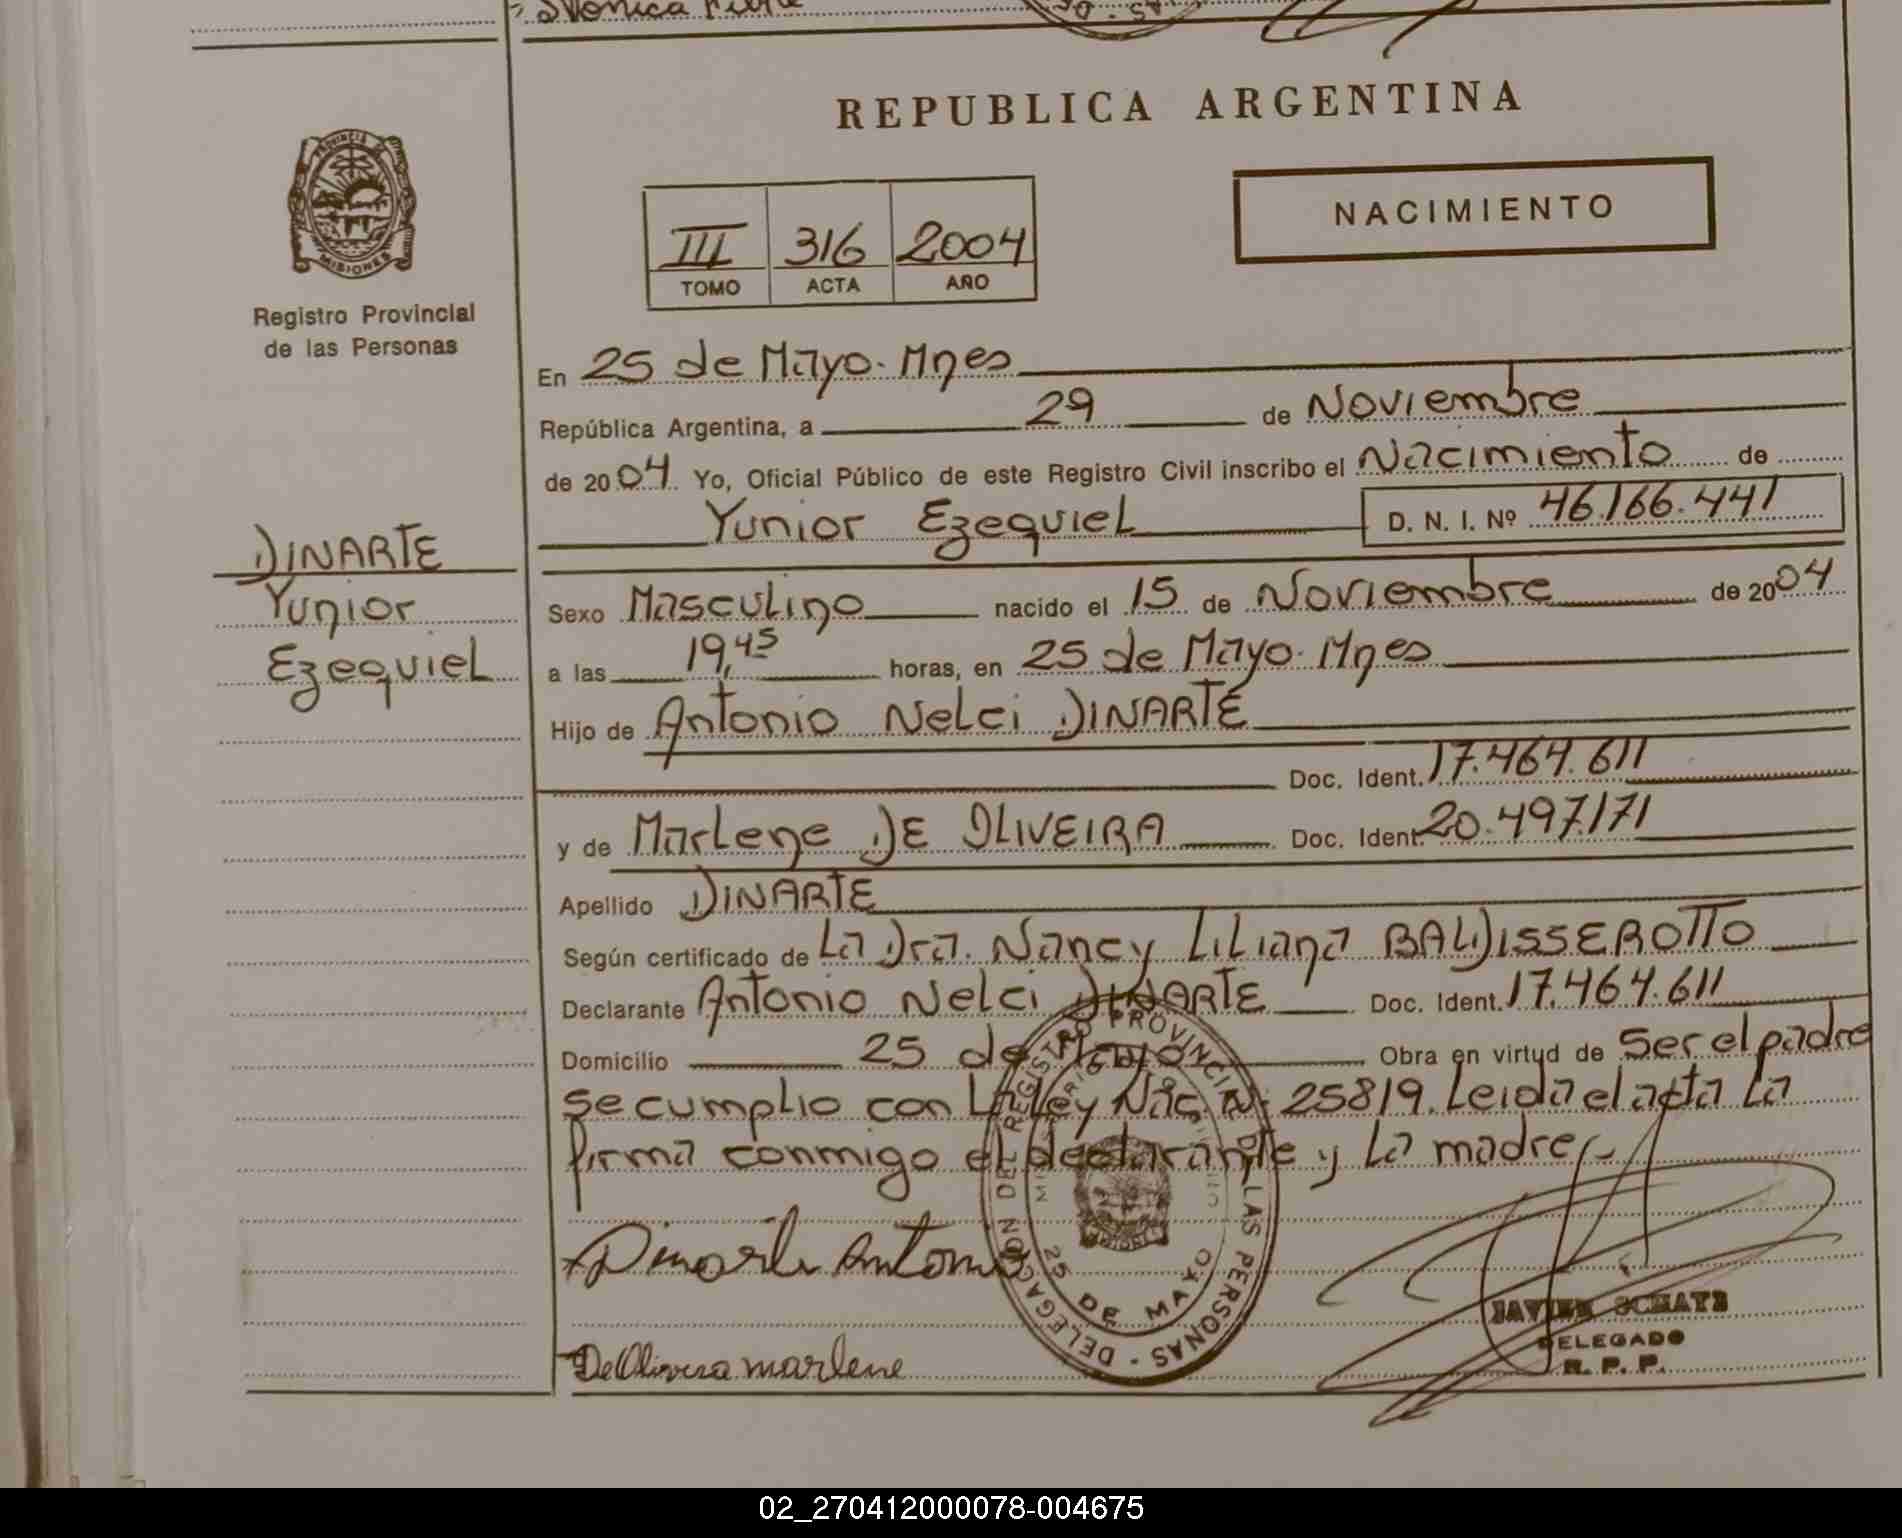 REPUBLICA ARGENTINA
PROVINCIA DE
MISIONES
Registro Provincial
de las Personas
NACIMIENTO
III 316 2004
TOMO ACTA AÑO
DINARTE
Yunior
Ezequiel
En 25 de Mayo. Mnes
República Argentina, a 29 de Noviembre
de 2004 Yo, Oficial Público de este Registro Civil inscribo el Nacimiento de
Yunior Ezequiel D. N. I. Nº 46.166.441
Sexo Masculino nacido el 15 de Noviembre de 2004
a las 19,45 horas, en 25 de Mayo. Mnes
Hijo de Antonio Nelci DINARTE
Doc. Ident. 17.464.611
y de Marlene DE OLIVEIRA Doc. Ident. 20.497.171
Apellido DINARTE
Según certificado de La Dra. Nancy Liliana BALDISSEROTTO
Declarante Antonio Nelci DINARTE Doc. Ident. 17.464.611
Domicilio 25 de Mayo Obra en virtud de Ser el padre
Se cumplio con La Ley Nac. N: 25819. Leida el acta La
firma conmigo el declarante y La madre
Dinarte Antonio
DELEGACION DEL REGISTRO PROVINCIAL DE LAS PERSONAS - 25 DE MAYO
De Olivera marlene
JAVIER SCHATZ
DELEGADO
R. P. P.
02_270412000078-004675